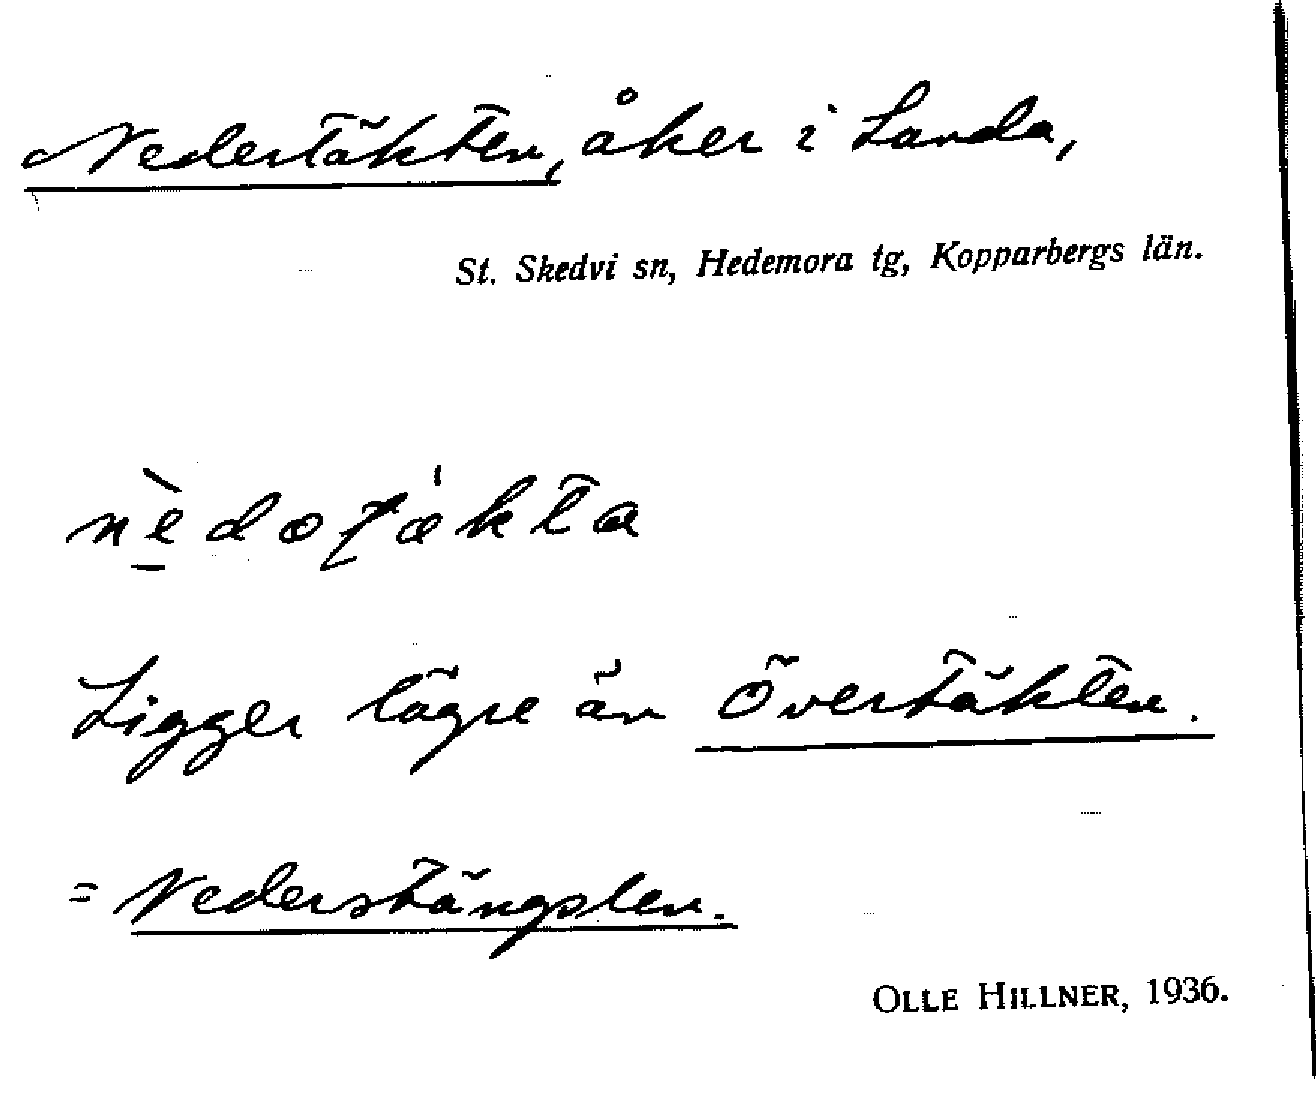 Nedertäkten, åker i Landa,
St. Skedvi sn, Hedemora tg, Kopparbergs län.
Ligger lägre än Övertäkten.
= Nederstängslen.
OLLE HILLNER, 1936.